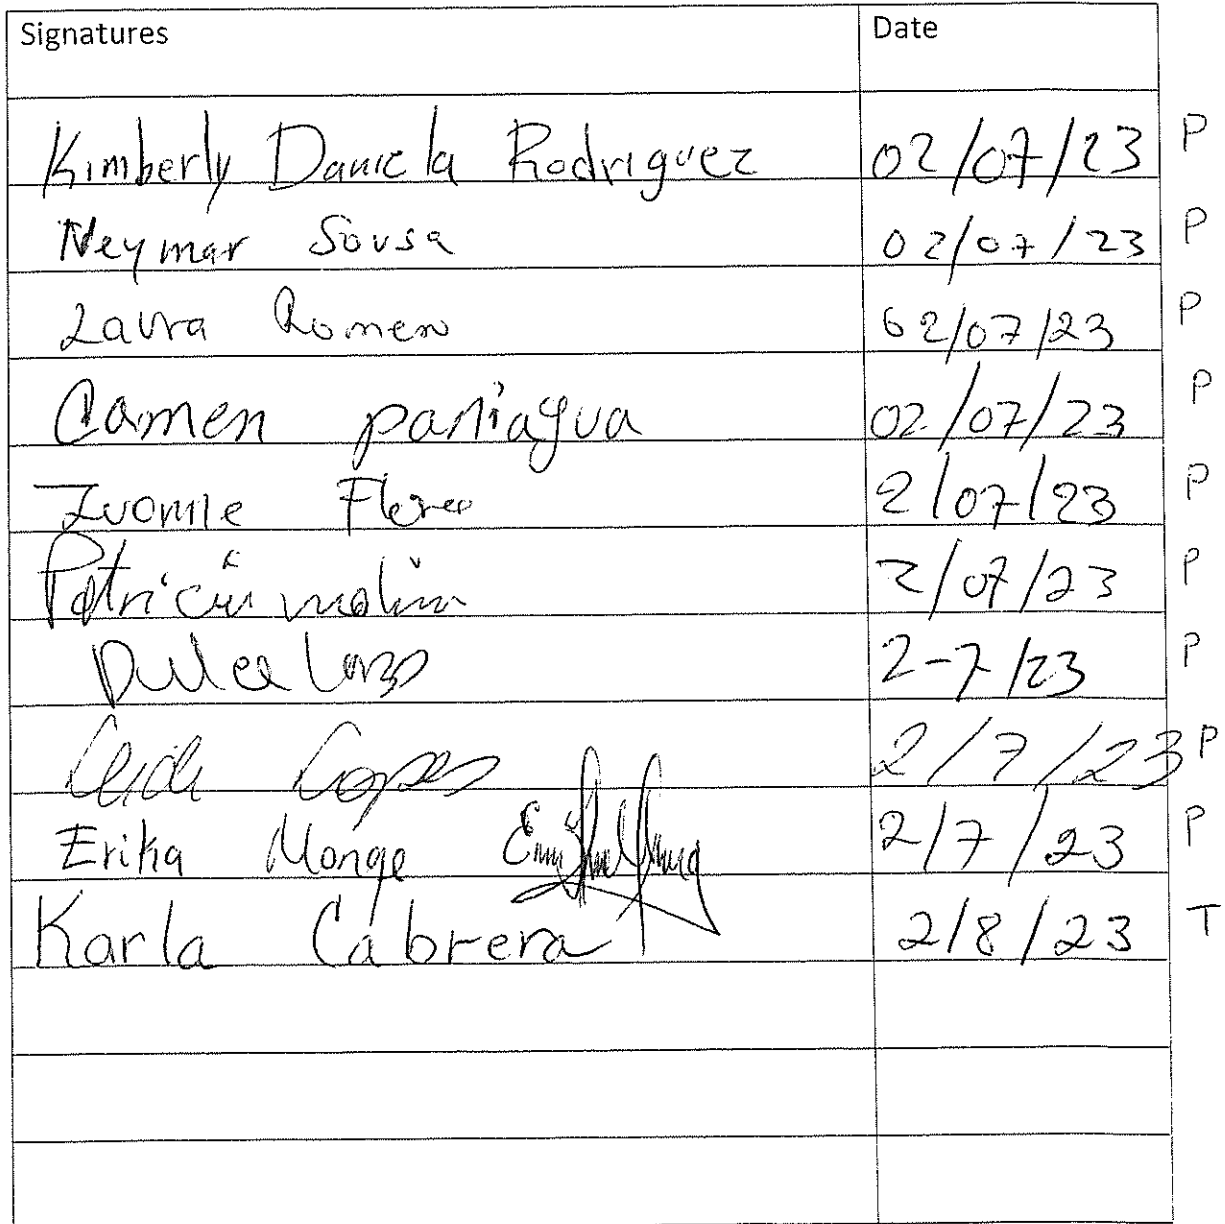 Signatures Date
Kimberly Daniela Rodriguez 02/07/23 P
Neymar Sousa 02/07/23 P
Laura Romero 02/07/23 P
Camen paniagua 02/07/23 P
Ivonne Flores 2/07/23 P
Patricia molina 2/07/23 P
Dulce Lazo 2-7/23 P
2/7/23 P
Erika Monge 2/7/23 P
Karla Cabrera 2/8/23 T